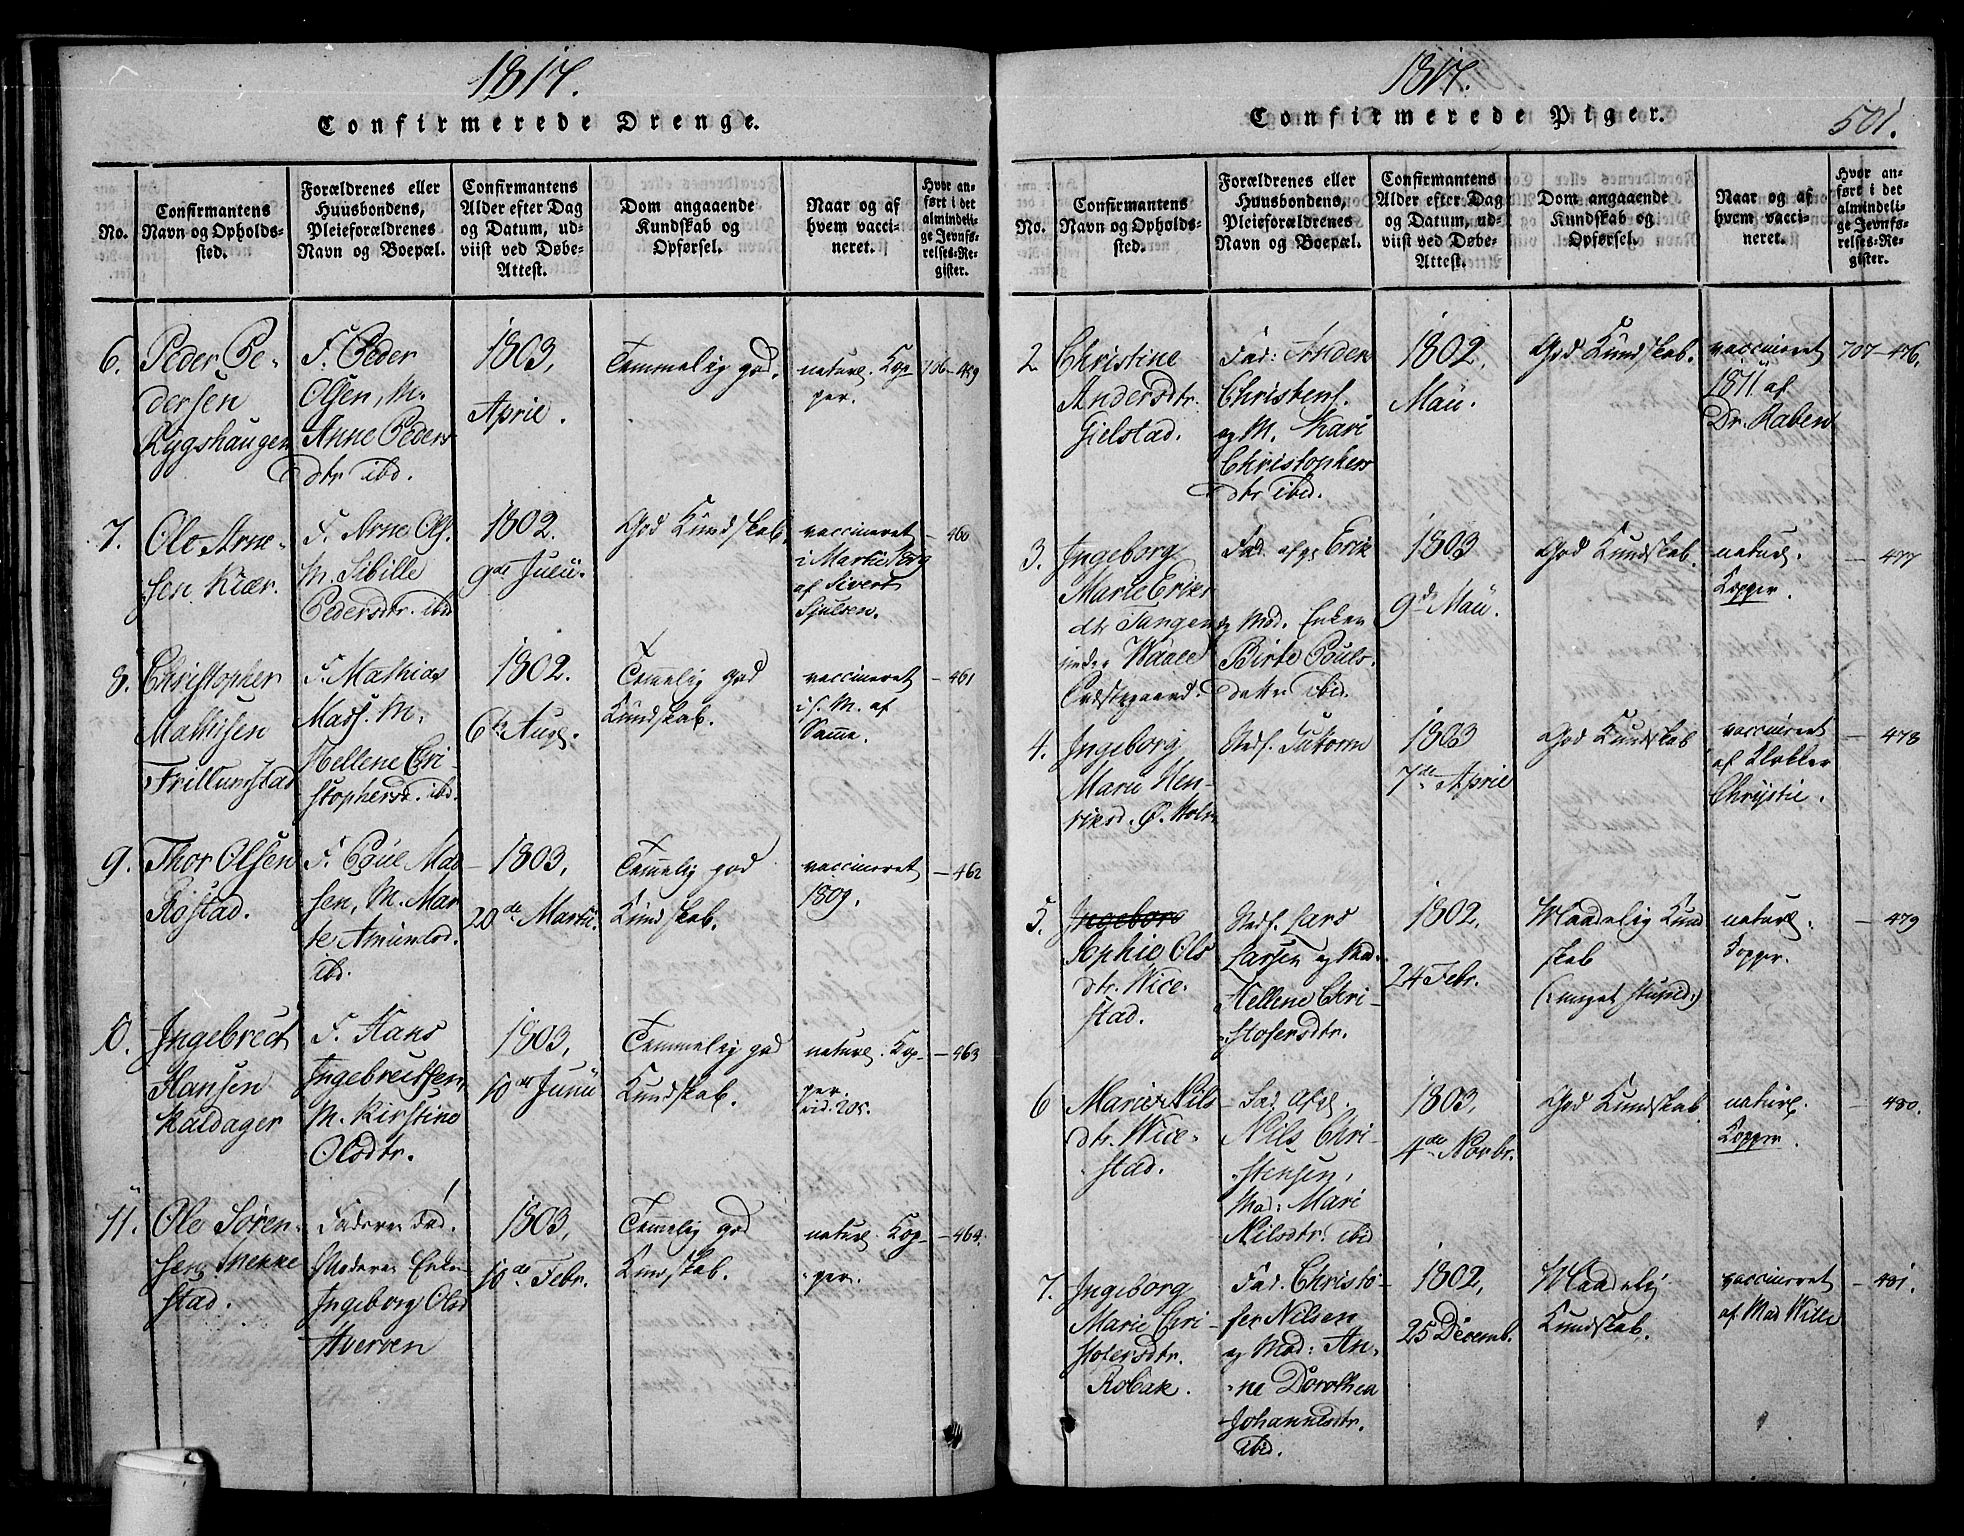 1817.
Confirmerede Drenge.
No.
Confirmantens
Navn og Opholds-
sted.
Forældrenes eller
Huusbondens,
Pleieforældrenes
Navn og Boepæl.
Confirmantens
Alder efter Dag
og Datum, ud-
viist ved Døbe-
Attest.
Dom angaaende
Kundskab og
Opførsel.
Naar og af
hvem vacci-
neret.
Hvor an-
ført i det
almindeli-
ge Jevnfø-
relses-Re-
gister.
6.
Peder Pe-
dersen
Rygshaugen
F. Peder
Olsen, M.
Anne Peders
dtr ibd.
1803,
April.
Temmelig god.
naturl. Kop
per.
706-459
7.
Ole Arne-
sen Kiær.
F. Arne Ols.
M. Sibille
Pedersdtr. ibd
1802.
9de Julii.
God Kundskab.
vaccineret
i Martii 1809
af Sivert
Sjulsen.
- 460
8.
Christopher
Mathisen
Trillumstad
F. Mathias
Mads. M.
Hellene Chri-
stophersd. ibd.
1802.
6te Aug.
Temelig god
Kundskab.
vaccineret
i s. M. af
Samme.
- 461
9.
Thor Olsen
Rostad.
F. Poul Mad-
sen, M. Mar-
te Amundsd.
ibd.
1803,
20de Martii.
Temelig god
Kundskab.
vaccineret
1809.
- 462
10.
Ingebrect
Hansen
Haldager
F. Hans
Ingebrectsen,
M. Kirstine
Olsdtr.
1803,
10de Junii
Temmelig god
Kundskab.
naturl. Kop-
per.
vid. 205.
- 463
11.
Ole Sören-
sen
stad.
Faderen död.
Moderen Enken
Ingeborg Olsd
Hverven
1803,
10de Febr.
Temelig god
Kundskab.
naturl. Kop-
per.
- 464.
1817.
Confirmerede Piger.
501.
No.
Confirmantens
Navn og Opholds-
sted.
Forældrenes eller
Huusbondens,
Pleieforældrenes
Navn og Boepæl.
Confirmantens
Alder efter Dag
og Datum, ud-
viist ved Døbe-
Attest.
Dom angaaende
Kundskab og
Opførsel.
Naar og af
hvem vacci-
neret.
Hvor an-
ført i det
almindeli-
ge Jevnfø-
relses-Re-
gister.
2.
Christine
Andersdtr.
Gielstad.
Fad: Anders
Christens.
og M. Mari
Christophers
dtr ibid.
1802.
Maii.
God Kundskab.
vaccineret
1811 af
Dr. Raben
707-476.
3.
Ingeborg
Marie Eriks
dtr Tangen
under Waale
Præstegaard.
Fad. afg. Erik
og Mod. Enken
Birte Pouls-
datter ibid.
1803
9de Maii.
God Kundskab.
naturl.
Kopper.
- 477
4.
Ingeborg
Marie Hen-
riksd. Ø. Holm
1803
7de April
God Kundskab
vaccineret
af Klokker
Christie.
- 478
5.
Ingeborg
Sophie Ols
dtr. Wice-
stad.
Lars
Larsen og Mod.
Hellene Chri-
stofersdtr.
1802.
24 Febr.
Maadelig Kund
skab
(:meget stupid:)
naturl.
Kopper.
- 479
6
Marie Nils
dtr. Wice-
stad.
Fad. afg.
Nils Chri-
stensen,
Mod: Mari
Nilsdtr. ibid
1803,
4de Novbr.
God Kundskab
naturl.
Kopper.
- 480.
7.
Ingeborg
Marie Chri-
stofersdtr.
Robak.
Fad. Christo-
fer Nilsen
og Mod: An-
ne Dorothea
Johannesdtr.
ibid.
1802,
25 Decemb.
Maadelig
Kundskab.
vaccineret
af Mad Wille
- 481.